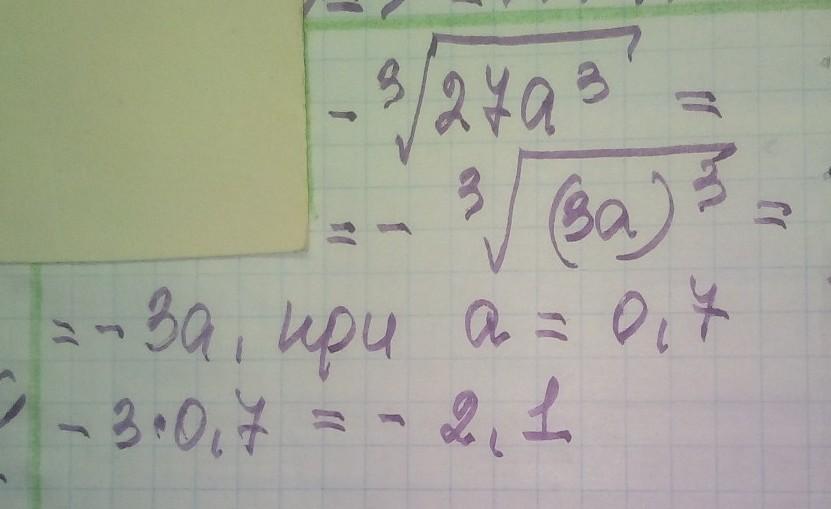 - ∛27a³ =
= - ∛(3a)³ =
= - 3a, при a = 0,7
- 3·0,7 = - 2,1